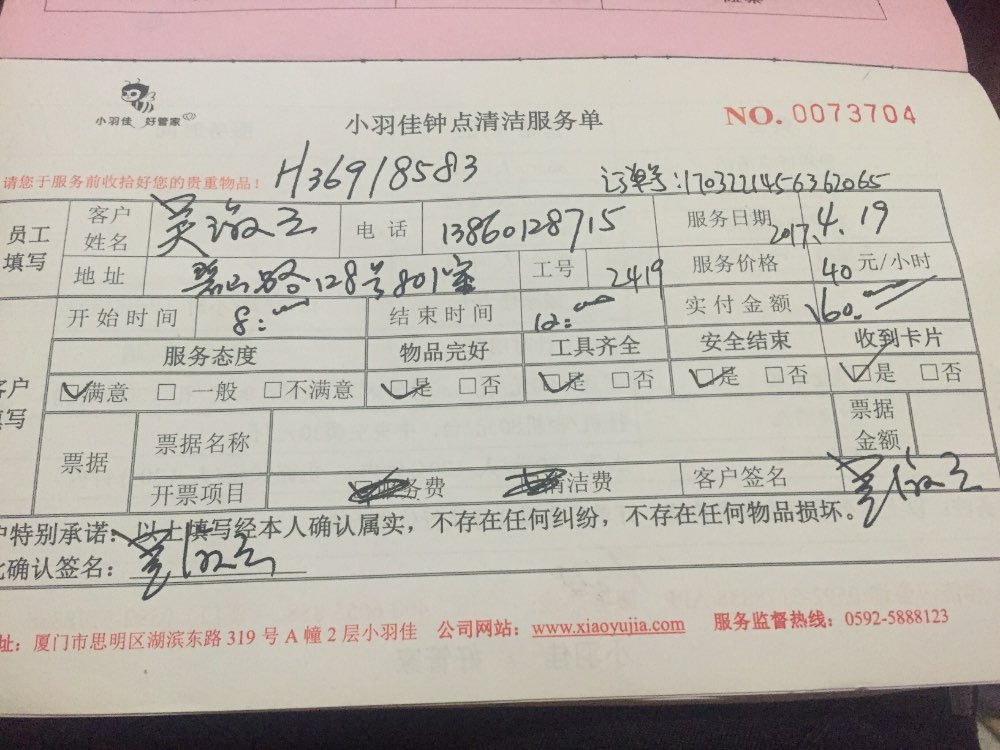 小羽佳 好管家
小羽佳钟点清洁服务单
NO. 0073704
请您于服务前收拾好您的贵重物品！
H36918583
订单号:1703221456362065
员工填写
客户姓名
电 话 13860128715
服务日期 2017.4.19
地 址 路128号801室
工号 2419
服务价格 40元/小时
开 始 时 间 8:00
结 束 时 间 12:00
实 付 金 额 160.
服务态度 物品完好 工具齐全 安全结束 收到卡片
客户填写
☑满意 □ 一般 □不满意 ☑是 □否 ☑是 □否 ☑是 □否 ☑是 □否
票据
票据名称
票据金额
开票项目 务费 清洁费
客户签名
户特别承诺：以上填写经本人确认属实，不存在任何纠纷，不存在任何物品损坏。
此确认签名：
址：厦门市思明区湖滨东路 319 号 A 幢 2 层小羽佳 公司网站：www.xiaoyujia.com 服务监督热线：0592-5888123